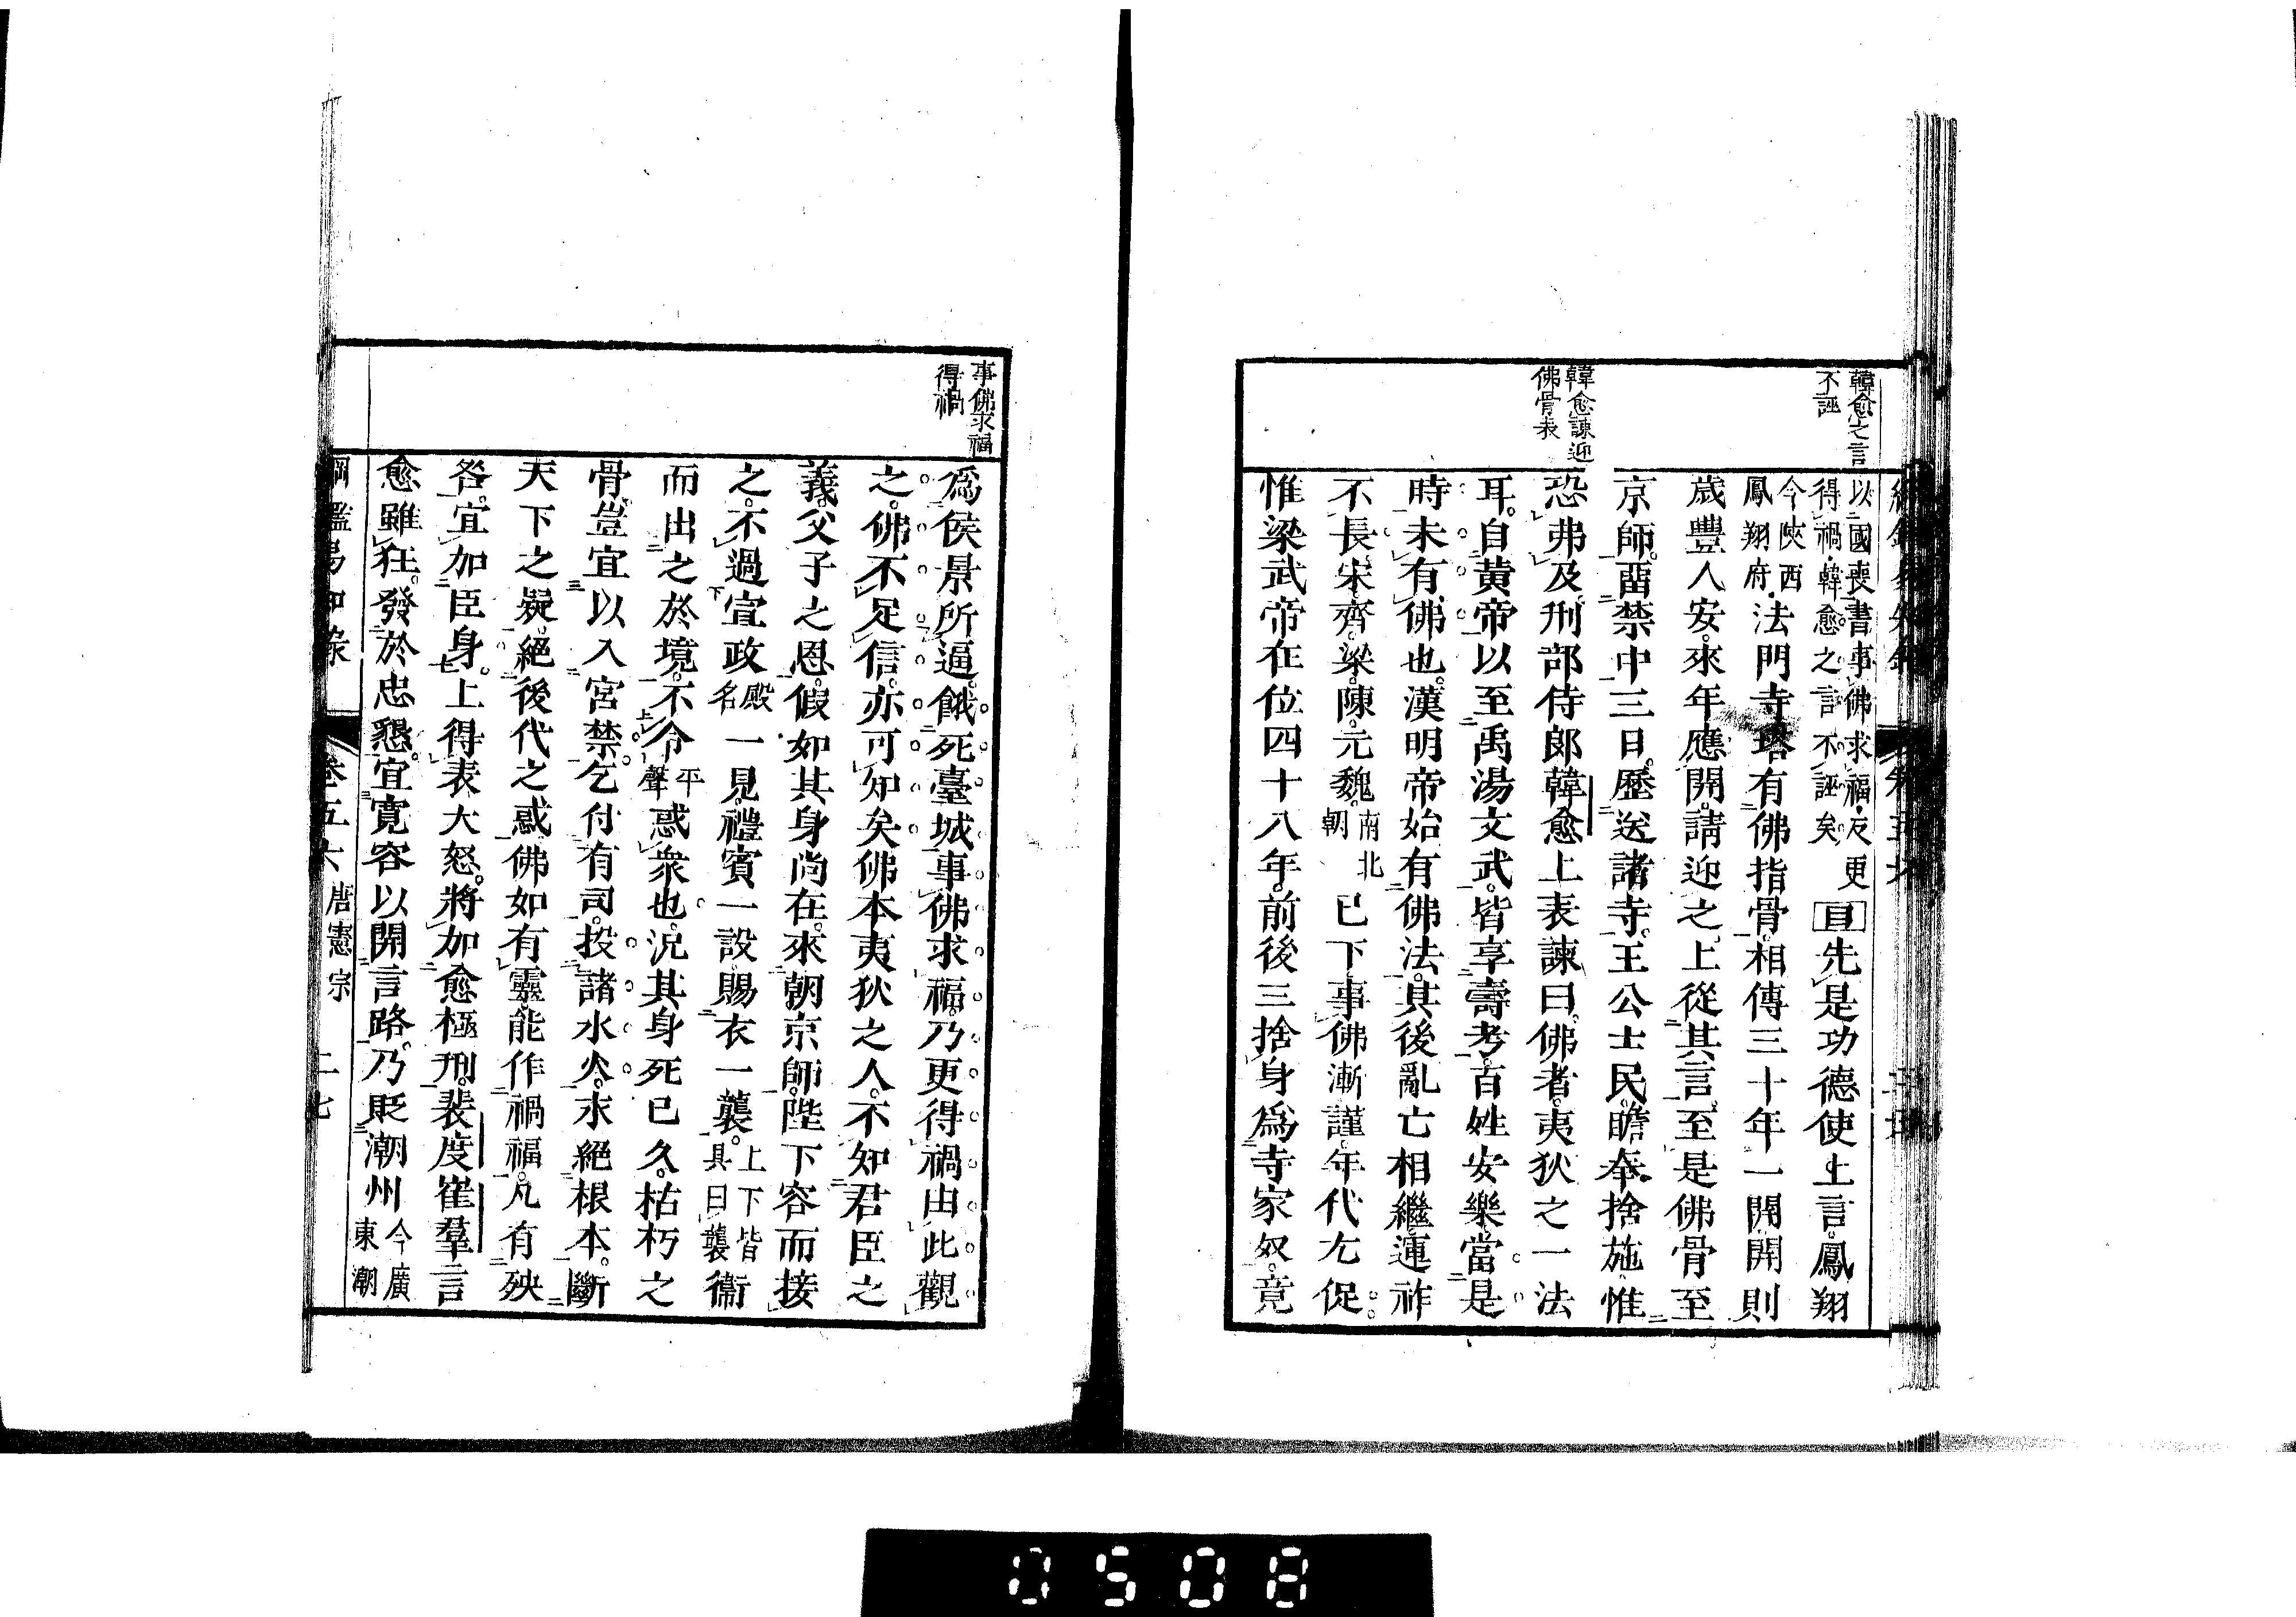 韓愈之言
不誣
韓愈諫迎
佛骨表
以國喪書事佛求福反更
得禍韓愈之言不誣矣
目先是功德使上言鳳翔
今陝西
鳳翔府
法門寺塔有佛指骨相傳三十年一開開則
歲豐人安來年應開請迎之上從其言至是佛骨至
京師畱禁中三日歷送諸寺王公士民瞻奉捨施惟
恐弗及刑部侍郎韓愈上表諫曰佛者夷狄之一法
耳自黃帝以至禹湯文武皆享壽考百姓安樂當是
時未有佛也漢明帝始有佛法其後亂亡相繼運祚
不長宋齊梁陳元魏南北朝已下事佛漸謹年代尤促
惟梁武帝在位四十八年前後三捨身爲寺家奴竟
事佛求福
得禍
爲侯景所逼餓死臺城事佛求福乃更得禍由此觀
之佛不足信亦可知矣佛本夷狄之人不知君臣之
義父子之恩假如其身尚在來朝京師陛下容而接
之不過宣政殿名一見禮賓一設賜衣一襲上下皆具曰襲衞
而出之於境不令平聲惑衆也況其身死已久枯朽之
骨豈宜以入宮禁乞付有司投諸水火永絕根本斷
天下之疑絕後代之惑佛如有靈能作禍福凡有殃
咎宜加臣身上得表大怒將加愈極刑裴度崔羣言
愈雖狂發於忠懇宜寬容以開言路乃貶潮州今廣東潮
綱鑑易知录 卷五六 唐憲宗 二七